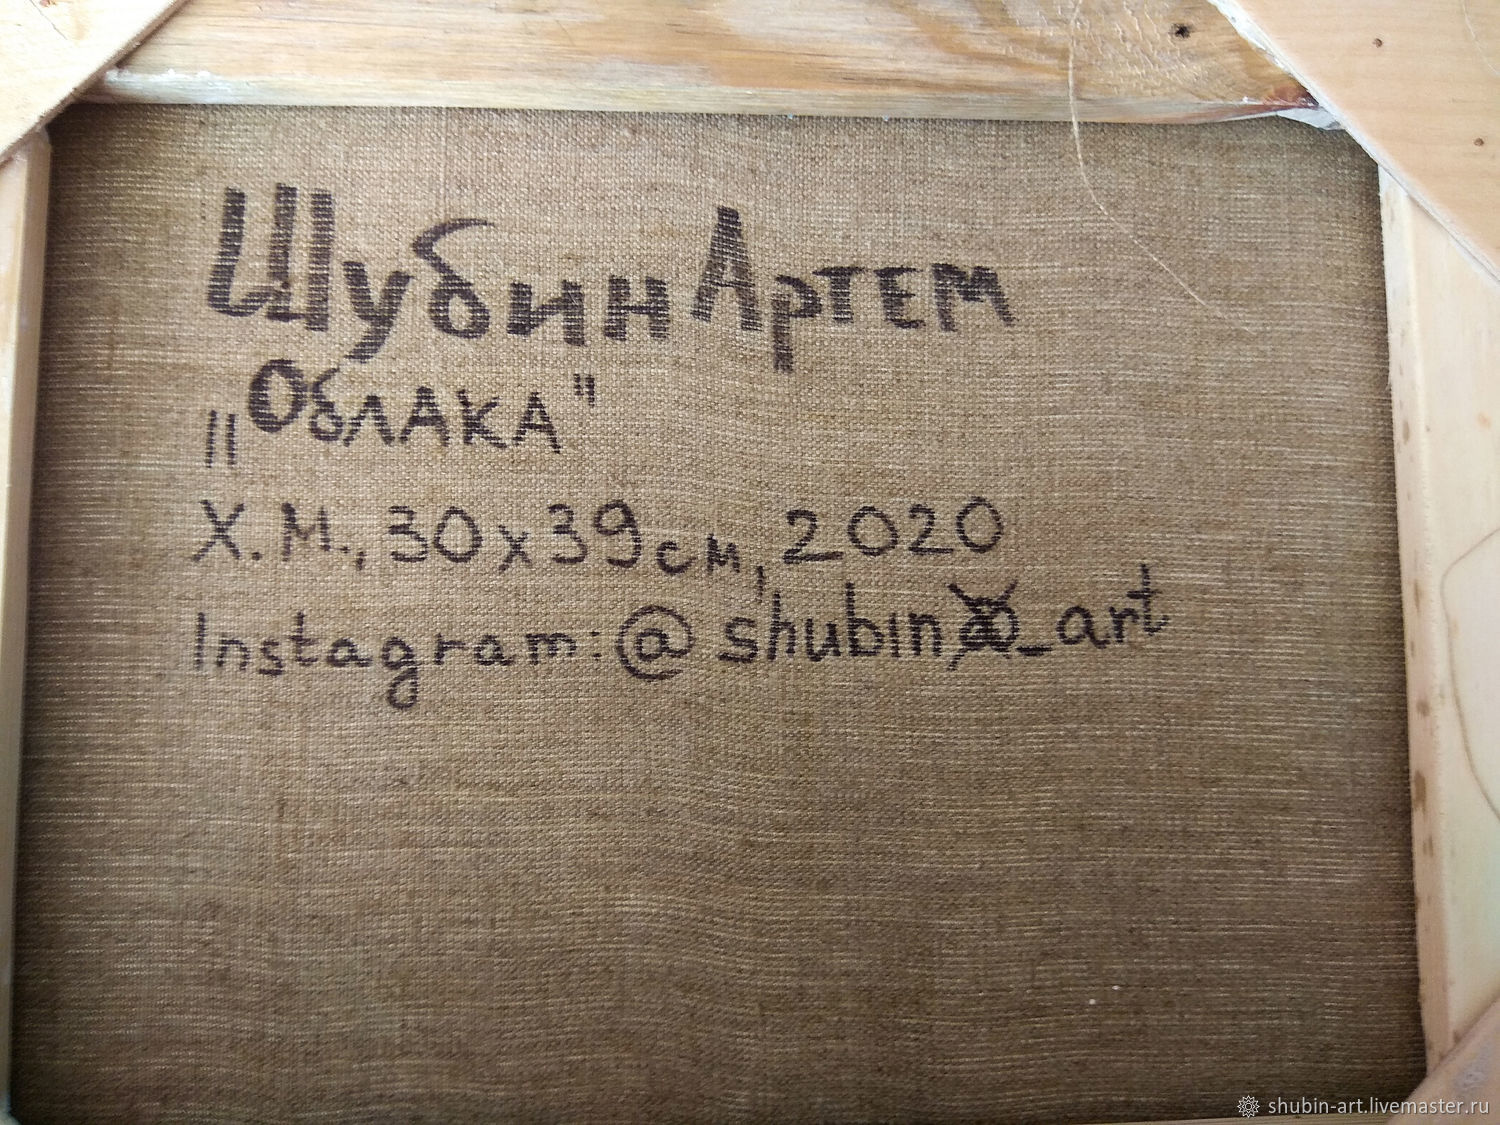 Шубин Артем
„Облака"
Х.М., 30х39см, 2020
Instagram: @shubin_art
shubin-art.livemaster.ru